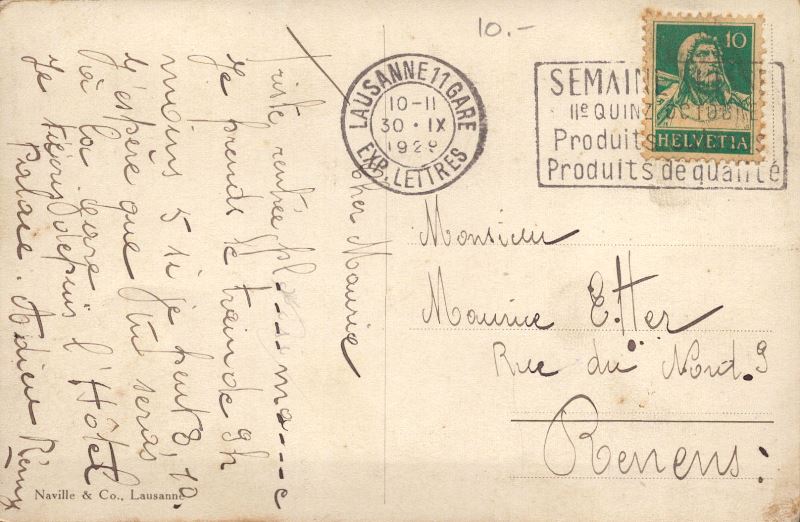 10.-
10
HELVETIA
LAUSANNE 11 GARE
10-11
30·IX
1929
EXP. LETTRES
SEMAIN
IIe QUINZ
Produits
Produits de qualité
Cher Maurice
Triste rentrée
Je prends le train de 9h
moins 5 si je peut
J'espère que tu seras
à la gare
Je depuis l'Hôtel
Palace. Adieu Rémy
Monsieur
Maurice Etter
Rue du Nord 9
Renens:
Naville & Co., Lausanne